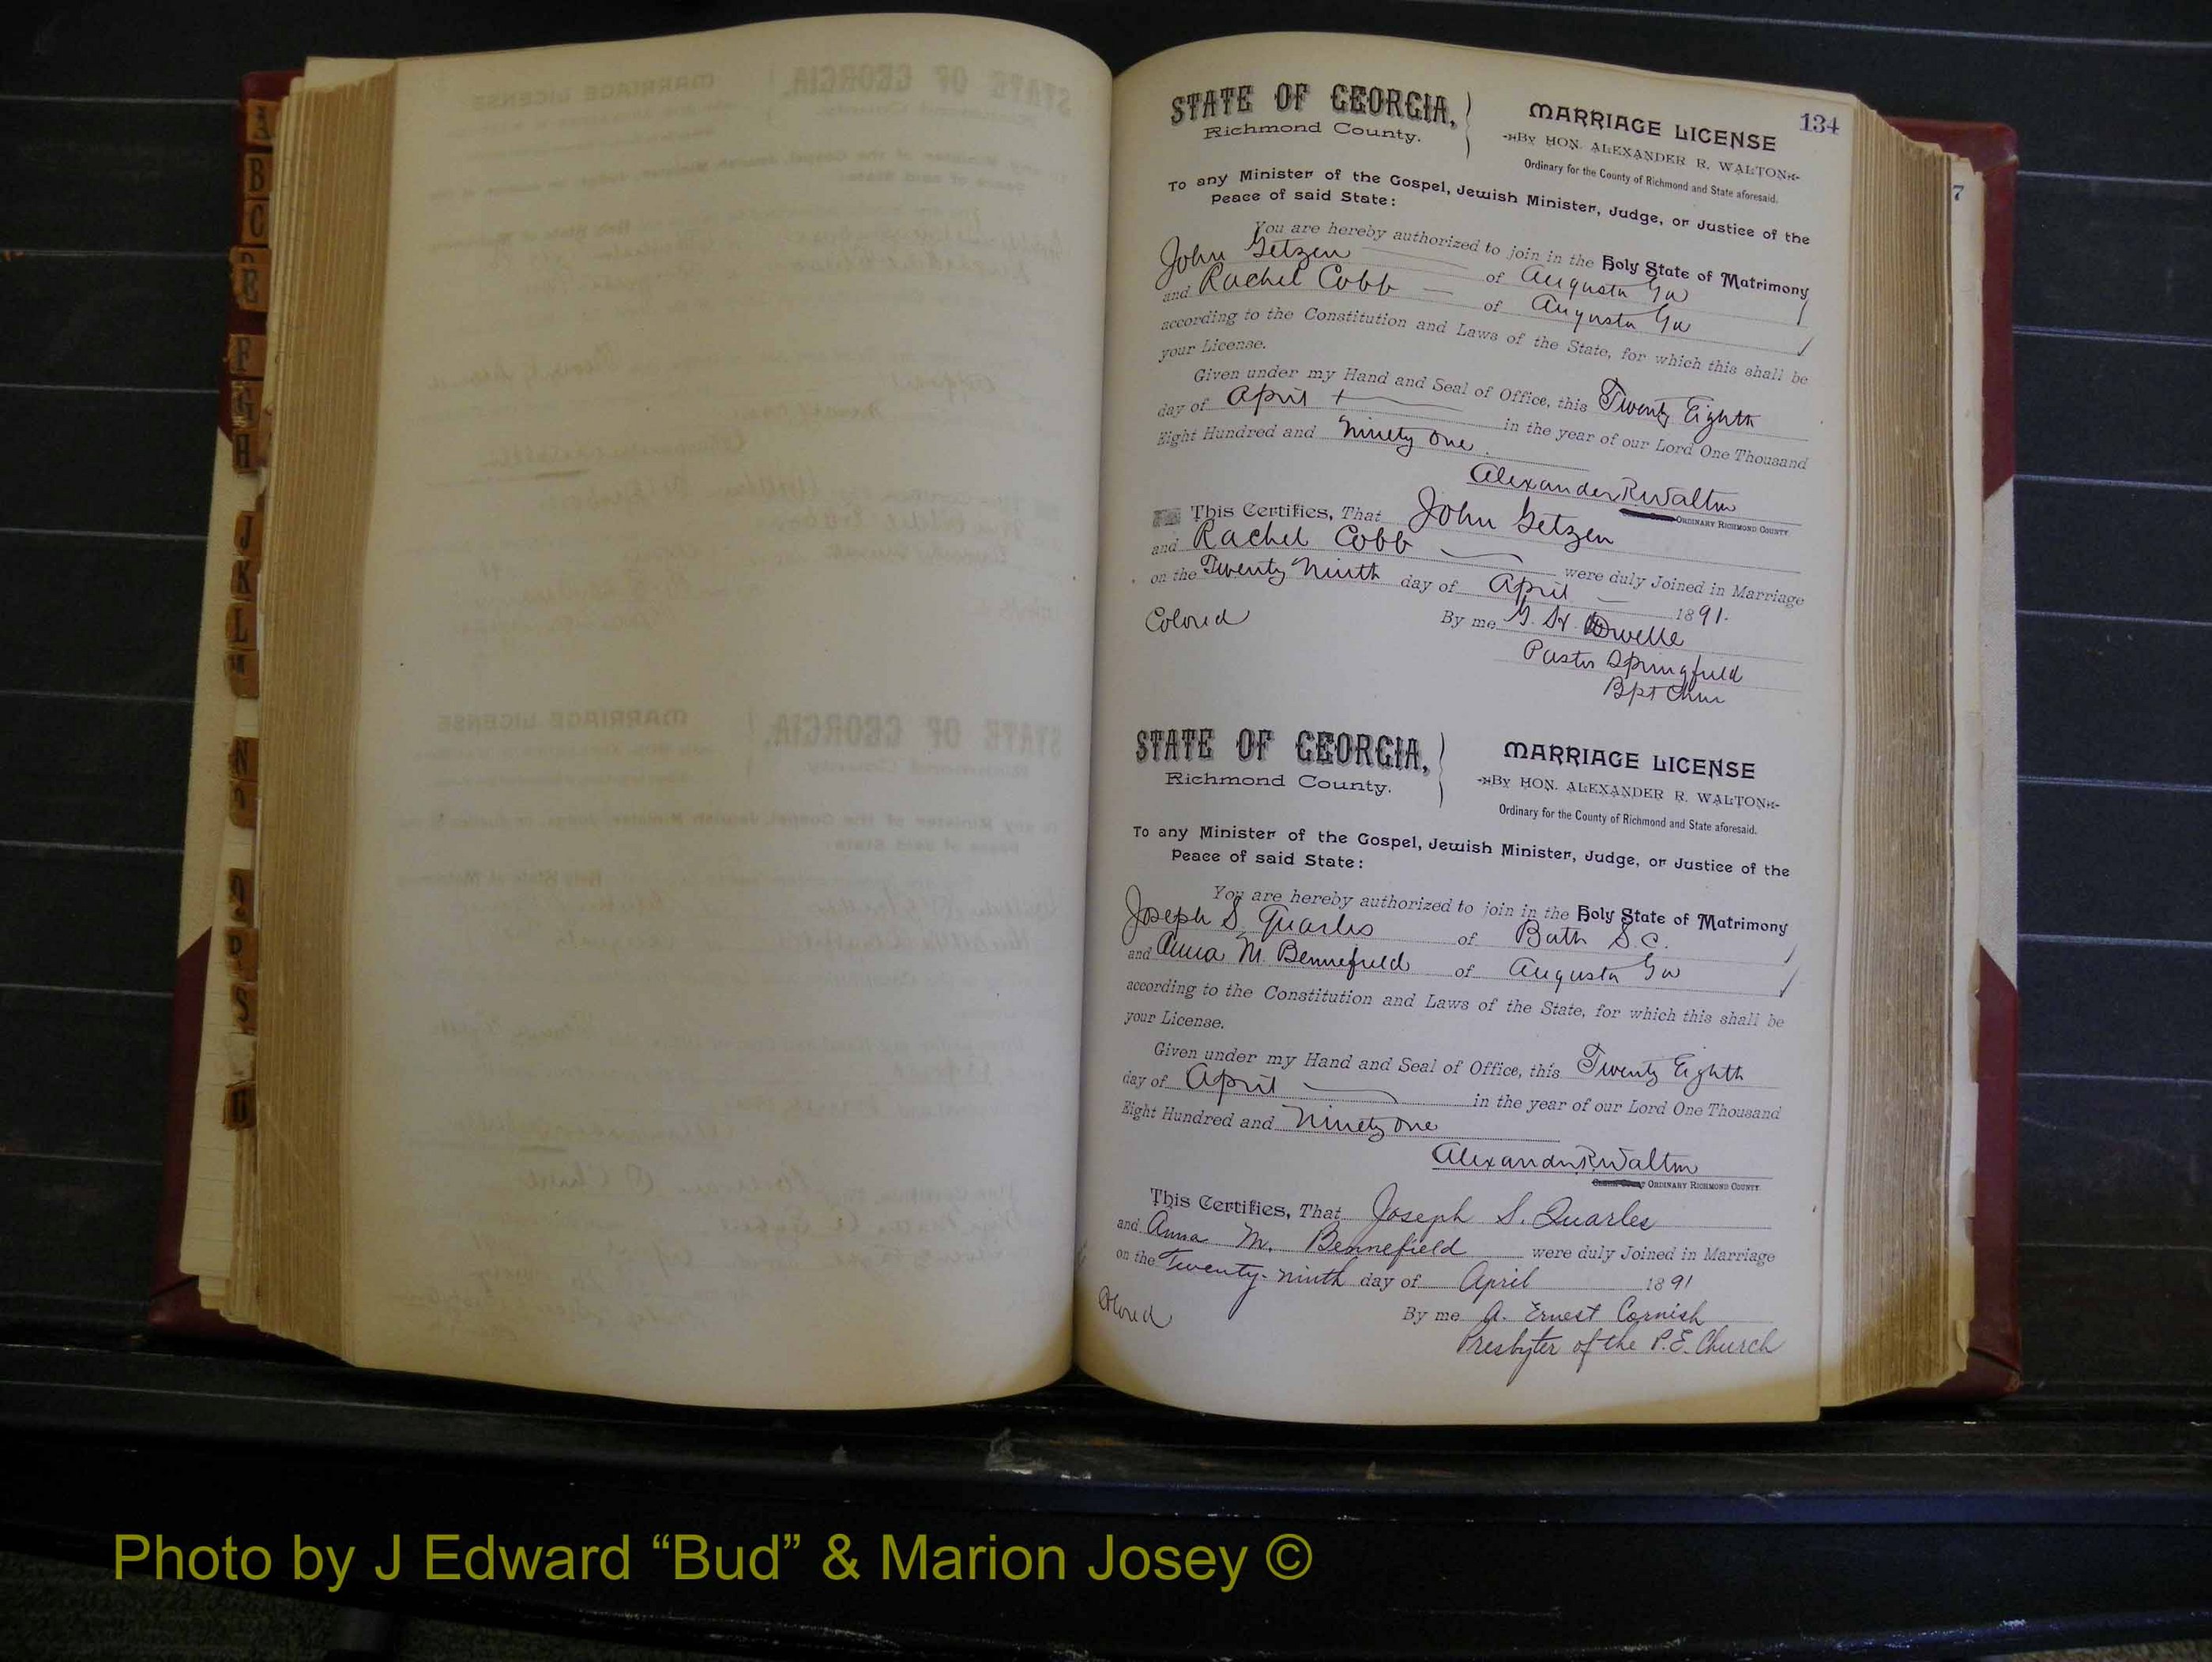 134
STATE OF GEORGIA,
Richmond County.
MARRIAGE LICENSE
By HON. ALEXANDER R. WALTON
Ordinary for the County of Richmond and State aforesaid.
To any Minister of the Gospel, Jewish Minister, Judge, or Justice of the
Peace of said State:
You are hereby authorized to join in the Holy State of Matrimony
John Getzen of Augusta Ga
and Rachel Cobb of Augusta Ga
according to the Constitution and Laws of the State, for which this shall be
your License.
Given under my Hand and Seal of Office, this Twenty Eighth
day of April in the year of our Lord One Thousand
Eight Hundred and Ninety One
Alexander R Walton
ORDINARY RICHMOND COUNTY
This Certifies, That John Getzen
and Rachel Cobb were duly Joined in Marriage
on the Twenty Ninth day of April 1891.
Colored
By me Dwelle
Pastor Springfield
Bpt Chur
STATE OF GEORGIA,
Richmond County.
MARRIAGE LICENSE
By HON. ALEXANDER R. WALTON
Ordinary for the County of Richmond and State aforesaid.
To any Minister of the Gospel, Jewish Minister, Judge, or Justice of the
Peace of said State:
You are hereby authorized to join in the Holy State of Matrimony
Joseph S. Quarles of Bath S.C.
and Anna M. Bennefield of Augusta Ga
according to the Constitution and Laws of the State, for which this shall be
your License.
Given under my Hand and Seal of Office, this Twenty Eighth
day of April in the year of our Lord One Thousand
Eight Hundred and Ninety One
Alexander R. Walton
ORDINARY RICHMOND COUNTY.
This Certifies, That Joseph S. Quarles
and Anna M. Bennefield were duly Joined in Marriage
on the Twenty-ninth day of April 1891
Colored
By me A. Ernest Cornish
Presbyter of the P.E. Church
7
A
B
C
E
F
G
H
J
K
L
M
N
O
P
S
Photo by J Edward “Bud” & Marion Josey ©